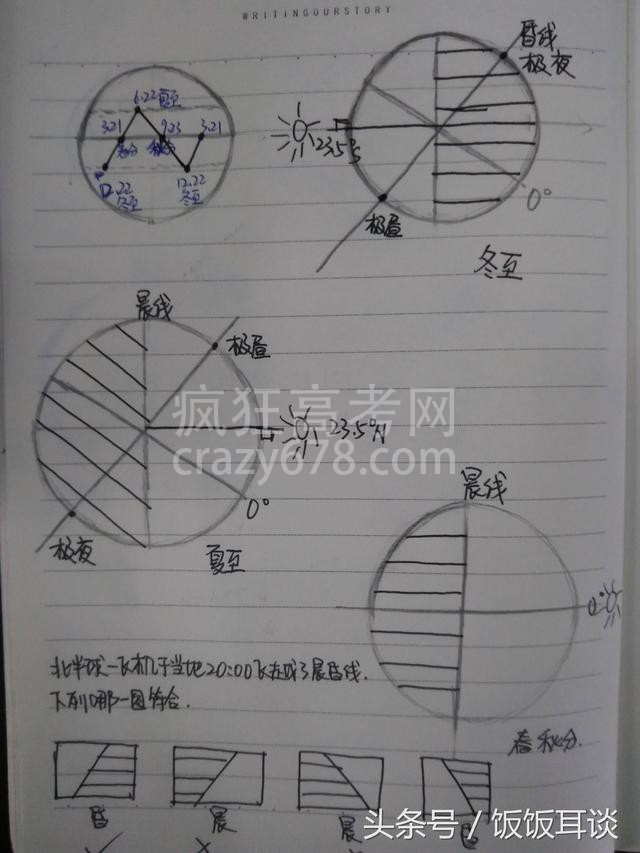 WRITINGOURSTORY
6.22 夏至
3.21
春分
9.23
秋分
3.21
12.22
冬至
12.22
冬至
昏线
极夜
23.5°S
极昼
0°
冬至
晨线
极昼
23.5°N
0°
极夜
夏至
晨线
0°
春秋分.
疯狂高考网
crazy678.com
北半球一飞机于当地20:00飞在
晨昏线.
下列哪一图符合.
昏
晨
晨
昏
头条号 / 饭饭耳谈